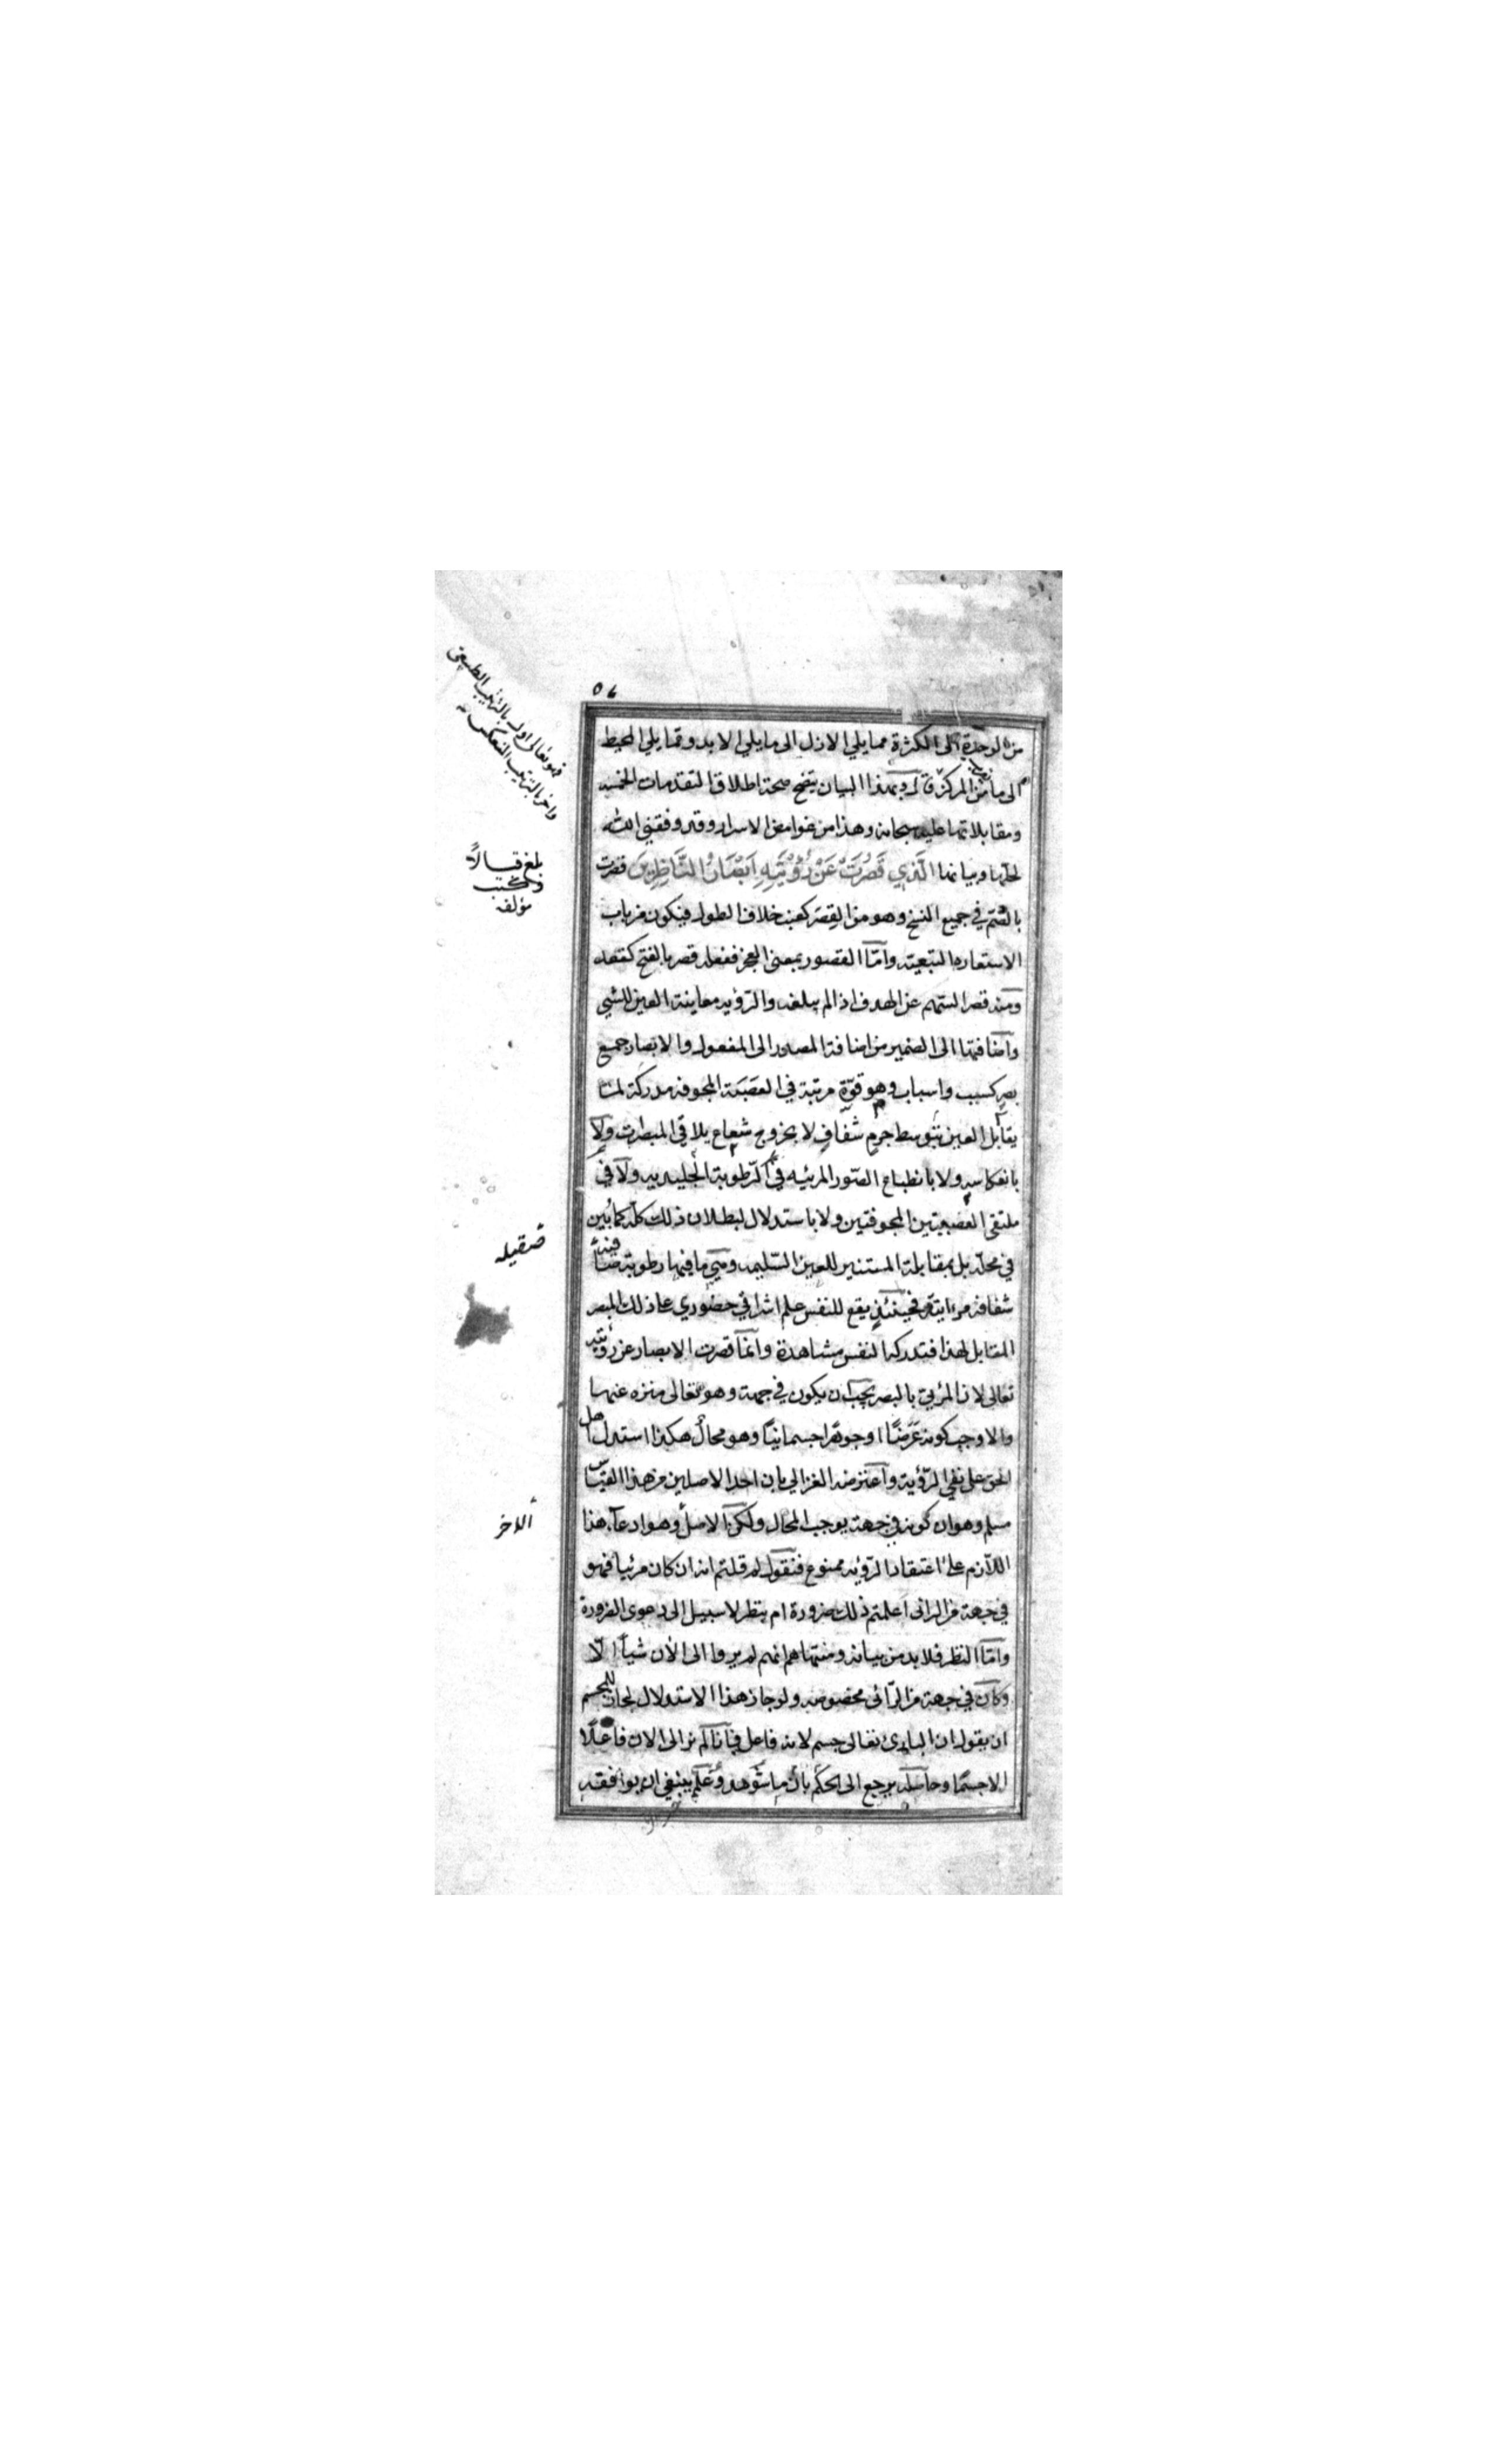 ٥٤
من الوحدة الى الكثرة مما يلي الازل الى ما يلي الابد ومما يلي المحيط
الى ما يلي المركز قال وبهذا البيان يتضح صحة اطلاق التقدمات الخمسة
ومقابلاتها عليه سبحانه وهذا من غوامض الاسرار وقد وفقني الله
لحلها وبيانها الَّذي قَصُرَتْ عَنْ رُؤْيَتِهِ اَبْصَارُ النَّاظِرِينَ قصرت
بالضم في جميع النسخ وهو من القِصَر كعنب خلاف الطول فيكون من باب
الاستعارة التبعية واما القصور بمعنى العجز ففعله قصر بالفتح كقعد
ومنه قصر السهم عن الهدف اذا لم يبلغه والرؤية معاينة العين للشيء
واضافتها الى الضمير من اضافة المصدر الى المفعول والابصار جمع
بصر كسبب واسباب وهو قوّة مرتبة في العصَبَة المجوفة مدركة لما
يقابل العين بتوسط جرم شفاف لا بخروج شعاع يلاقي المبصرات ولا
بانعكاسه ولا بانطباع الصور المرئية في الرطوبة الجليدية ولا في
ملتقى العصبتين المجوفتين ولا باستدلال لبطلان ذلك كله كما بُيّن
في محله بل بمقابلة المستنير للعين السليمة وهي ما فيها رطوبة صافية
شفافة مرائية فحينئذ يقع للنفس علم اشراقي حضوري على ذلك المبصر
المقابل لهذا فتدركه النفس مشاهدة وانما قصرت الابصار عن رؤيته
تعالى لان المرئي بالبصر يجب ان يكون في جهة وهو تعالى منزه عنها
والا وجب كونه عَرَضًا او جوهرًا جسمانيًا وهو محالٌ هكذا استدل اهل
الحق على نفي الرؤية واعترضه الغزالي بان احد الاصلين من هذا القياس
مسلم وهو ان كونه في جهة يوجب المحال ولكن الاصل وهو ادعاء هذا
اللازم على اعتقاد الرؤية ممنوع فنقول لم قلتم انه ان كان مرئيا فهو
في جهة من الرائى أعلمتم ذلك ضرورة ام بنظر لا سبيل الى دعوى الضرورة
واما النظر فلابد من بيانه ومنتهاهم انهم لم يروا الى الآن شيأ الّا
وكان في جهة من الرّائى مخصوصة ولو جاز هذا الاستدلال لجاز للمجسم
ان يقول ان البارئ تعالى جسم لانه فاعل فاننا لم نر الى الان فاعلًا
الا جسمًا وحاصله يرجع الى الحكم بأن ما شوهد وعُلم ينبغي ان يوافقه
فهو تعالى اول بالترتيب الطبيعي
واخر بالترتيب المنعكس
بلغ قبالًا
وكتب
مؤلفه
صقيلة
الاخر